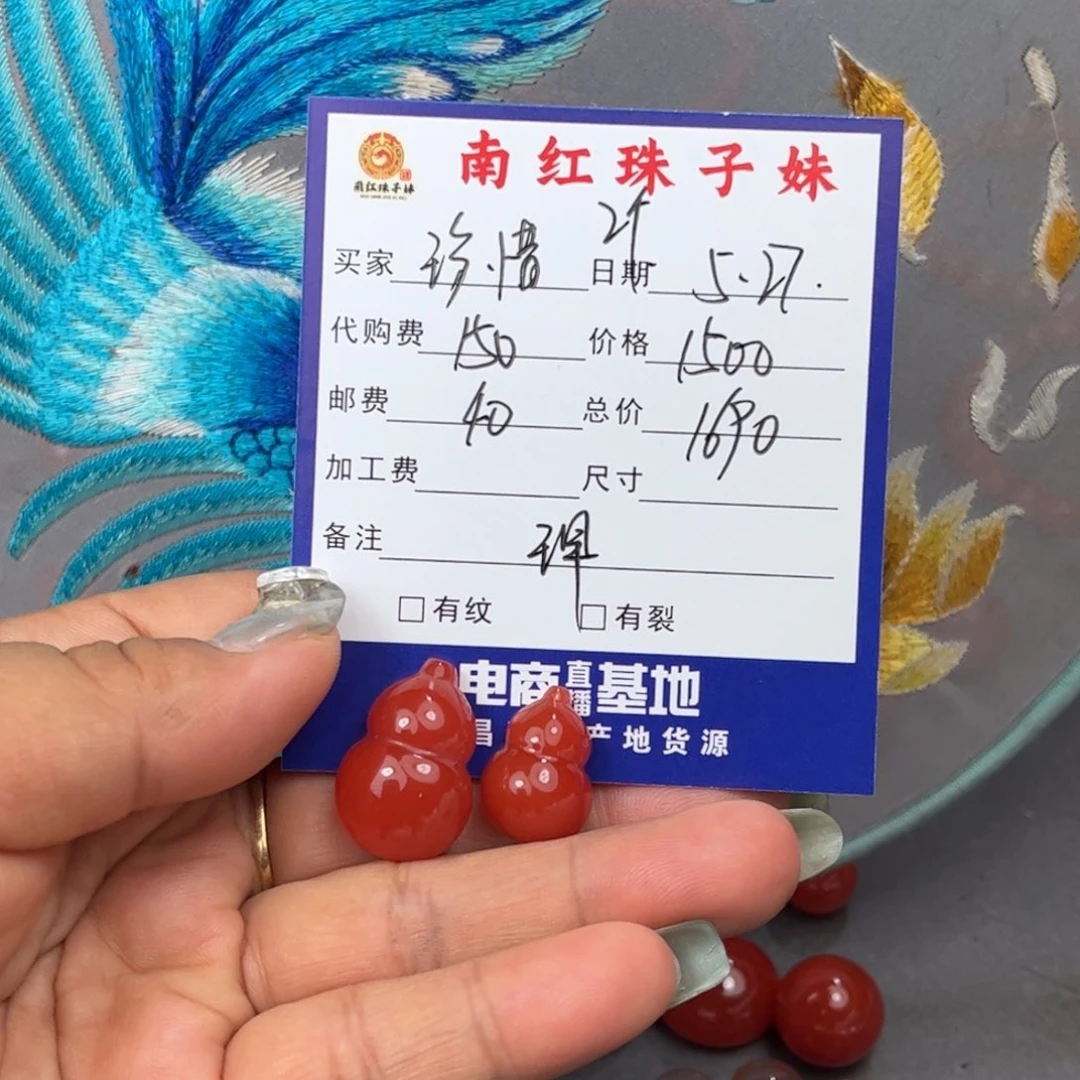 南红珠子妹
南红珠子妹
2个
买家 珍.惜 日期 5.27.
代购费 150 价格 1500
邮费 40 总价 1690
加工费 尺寸
备注
□有纹 □有裂
电商直播基地
昌 产地货源